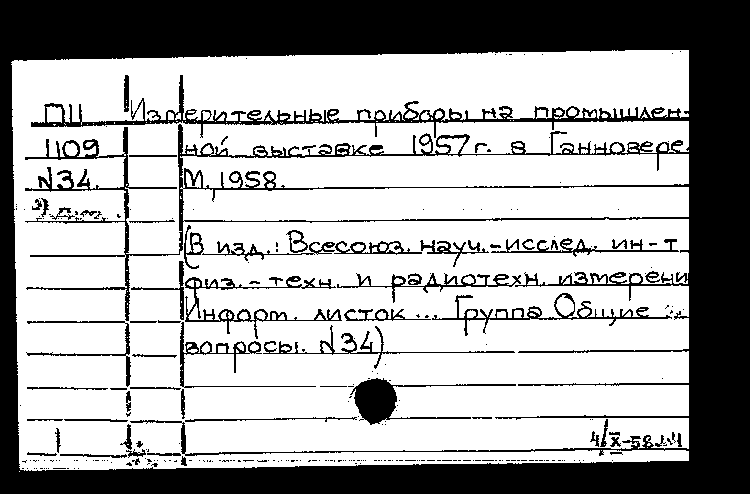 ПII Измерительные приборы на промышлен-
1109 ной выставке 1957г. в Ганновере.
N34. М., 1958.
(В изд.: Всесоюз. науч.-исслед. ин-т
физ.-техн. и радиотехн. измерени
Информ. листок ... Группа Общие
вопросы. N34)
1 4/X-58